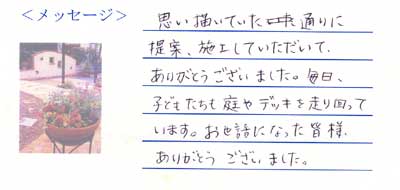 ＜メッセージ＞
思い描いていた通りに
提案、施工していただいて、
ありがとうございました。毎日、
子どもたちも庭やデッキを走り回って
います。お世話になった皆様、
ありがとうございました。